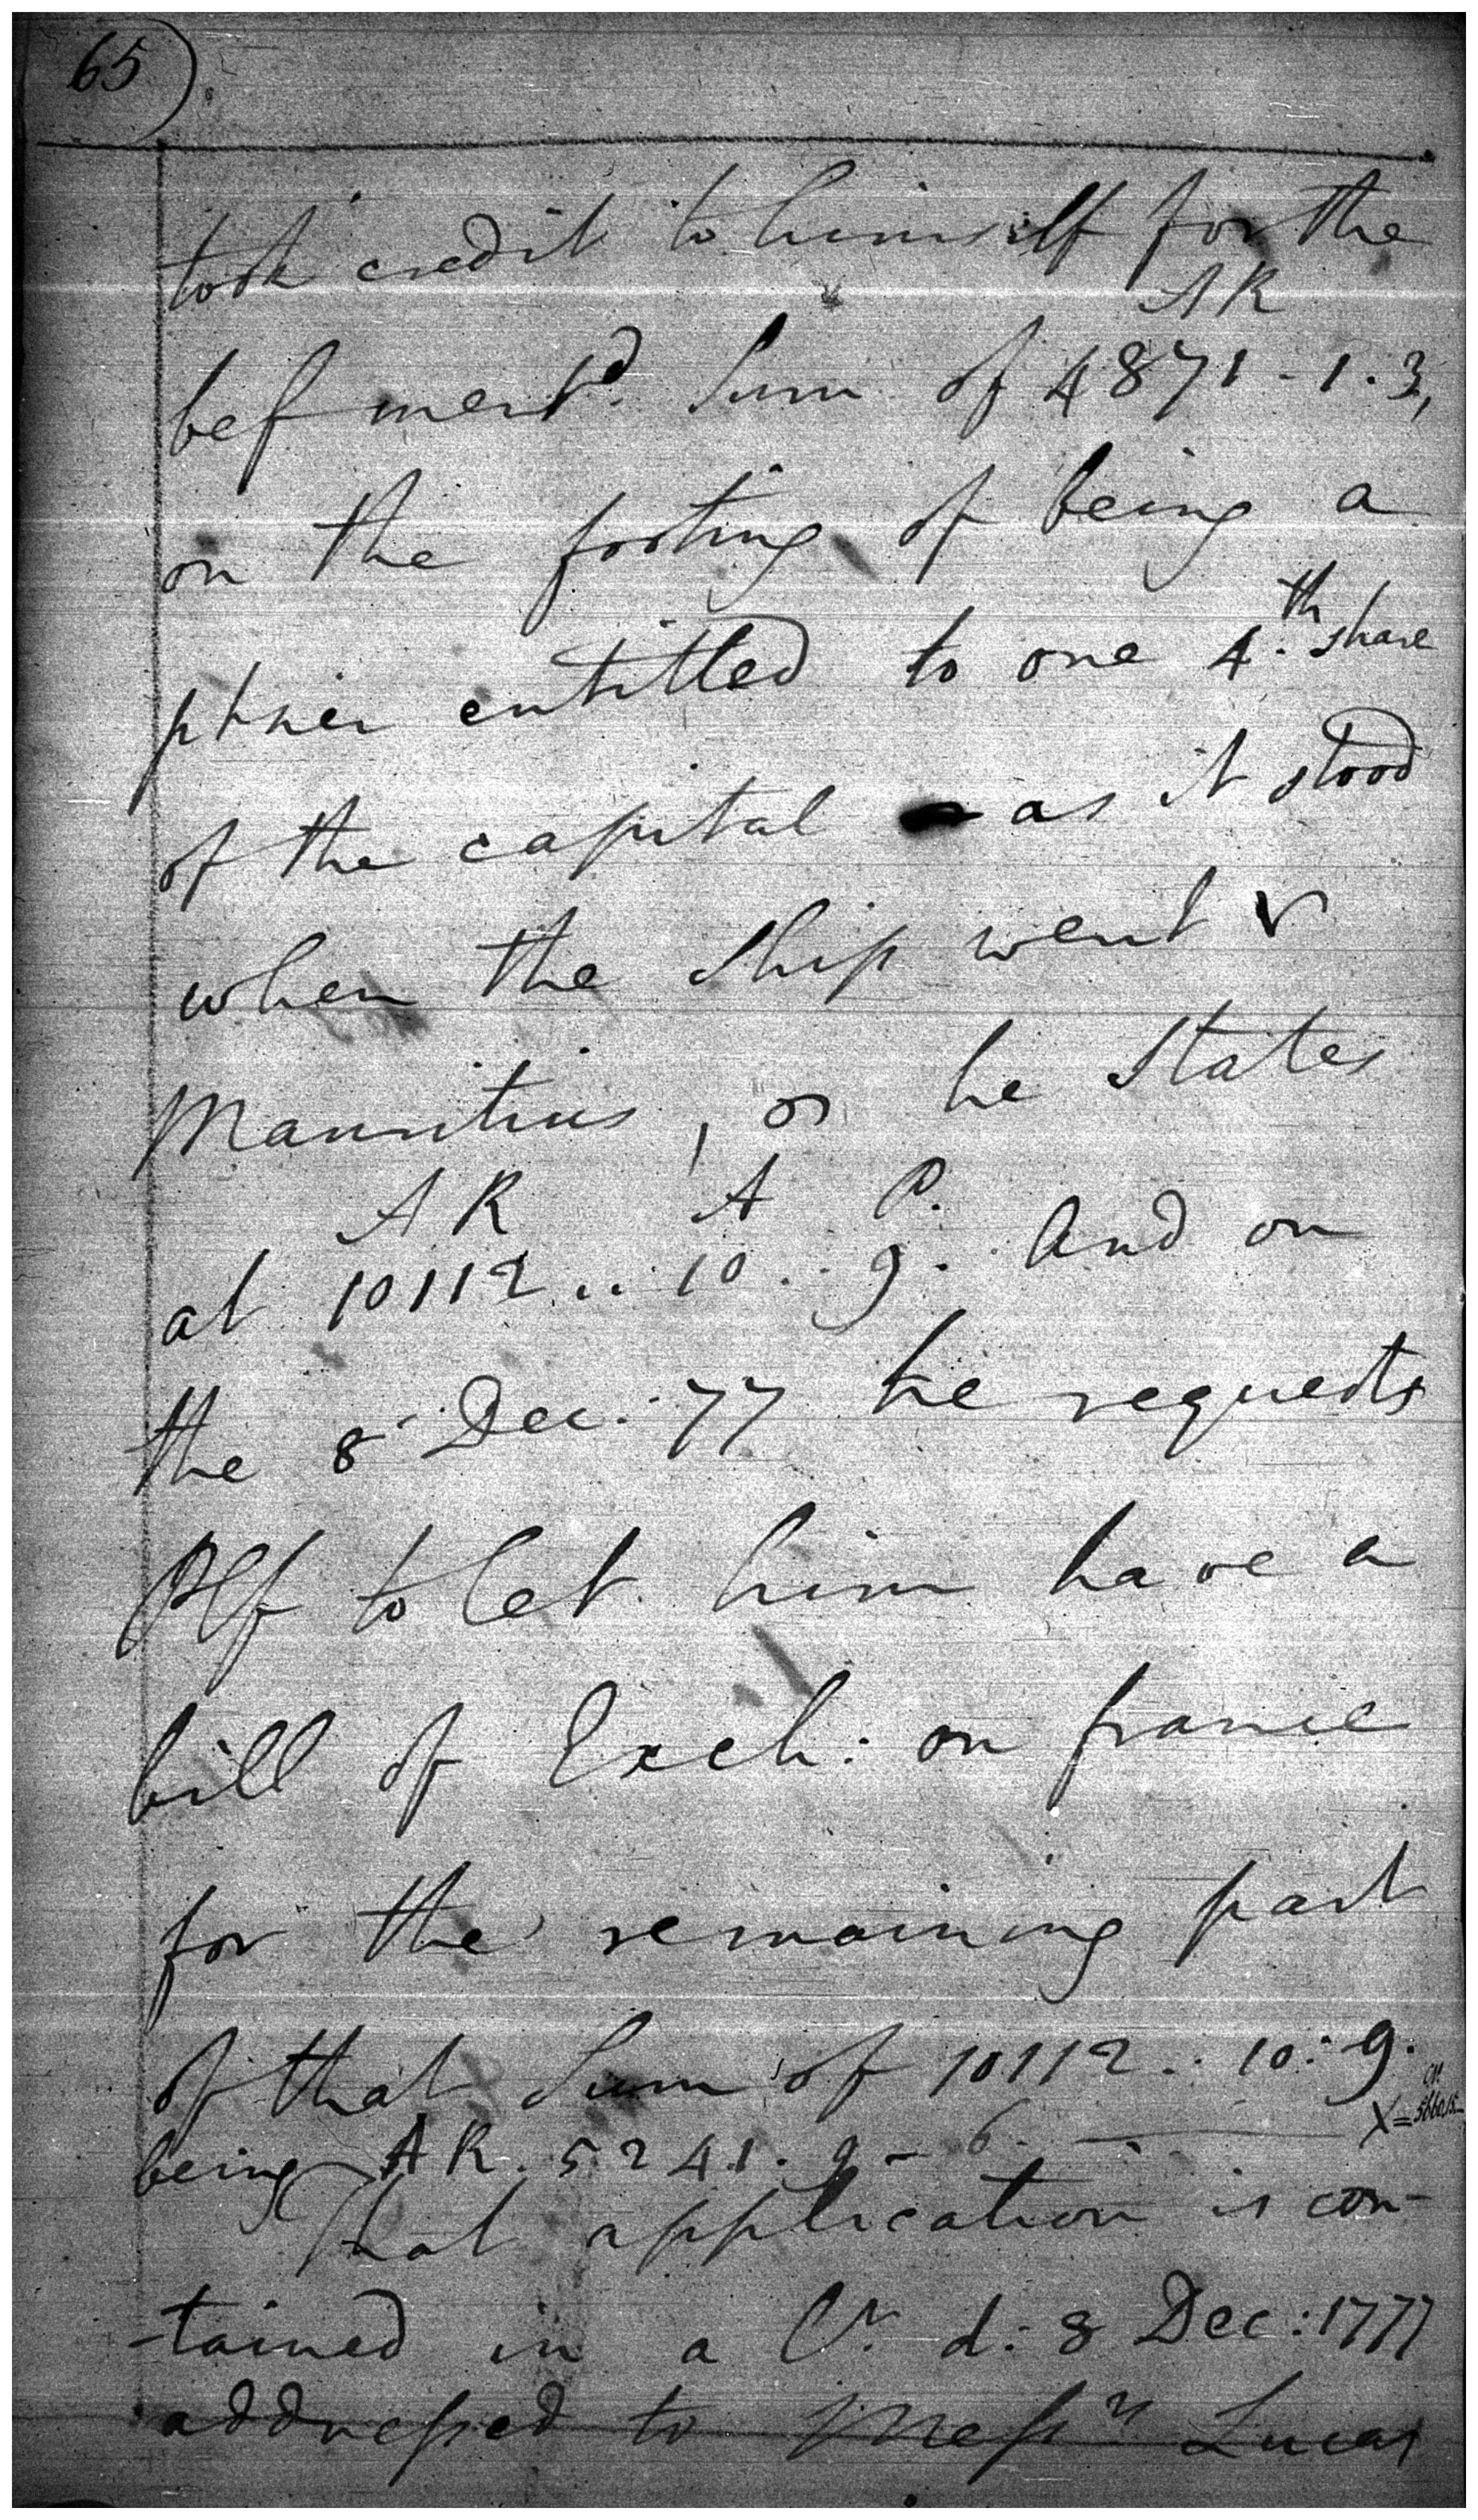 65
took credit to himself for the
A R
bef ment.d Sum of 4871 - 1 . 3,
on the footing of being a
ptner entitled to one 4.th share
of the capital as it stood
when the Ship went
Mauritius, or he States
A R A P.
at 10112 .. 10 .. 9. And on
the 8 Dec: 77 he requests
Plf to let him have a
bill of Exch: on france
for the remaining part
of that Sum of 10112 .. 10: 9.
being AR. 5241. 9 - 6.
That application is con-
-tained in a d: 8 Dec: 1777
addressed to Messrs Lucas